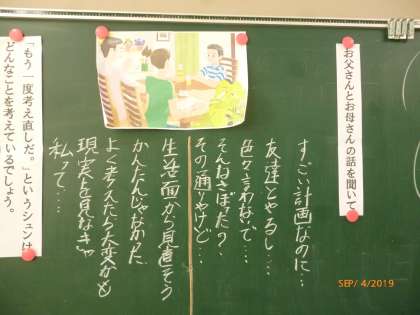 お父さんとお母さんの話を聞いて
すごい計画なのに…
友達とやるし…
色々言わないで…
そんなさぼった？
その通りやけど…
生活面から見直そう
かんたんじゃなかった
よく考えたら大変かも
現実を見なきゃ
私って…
「もう一度考え直しだ。」というシュンは
どんなことを考えているでしょう。
SEP/ 4/2019